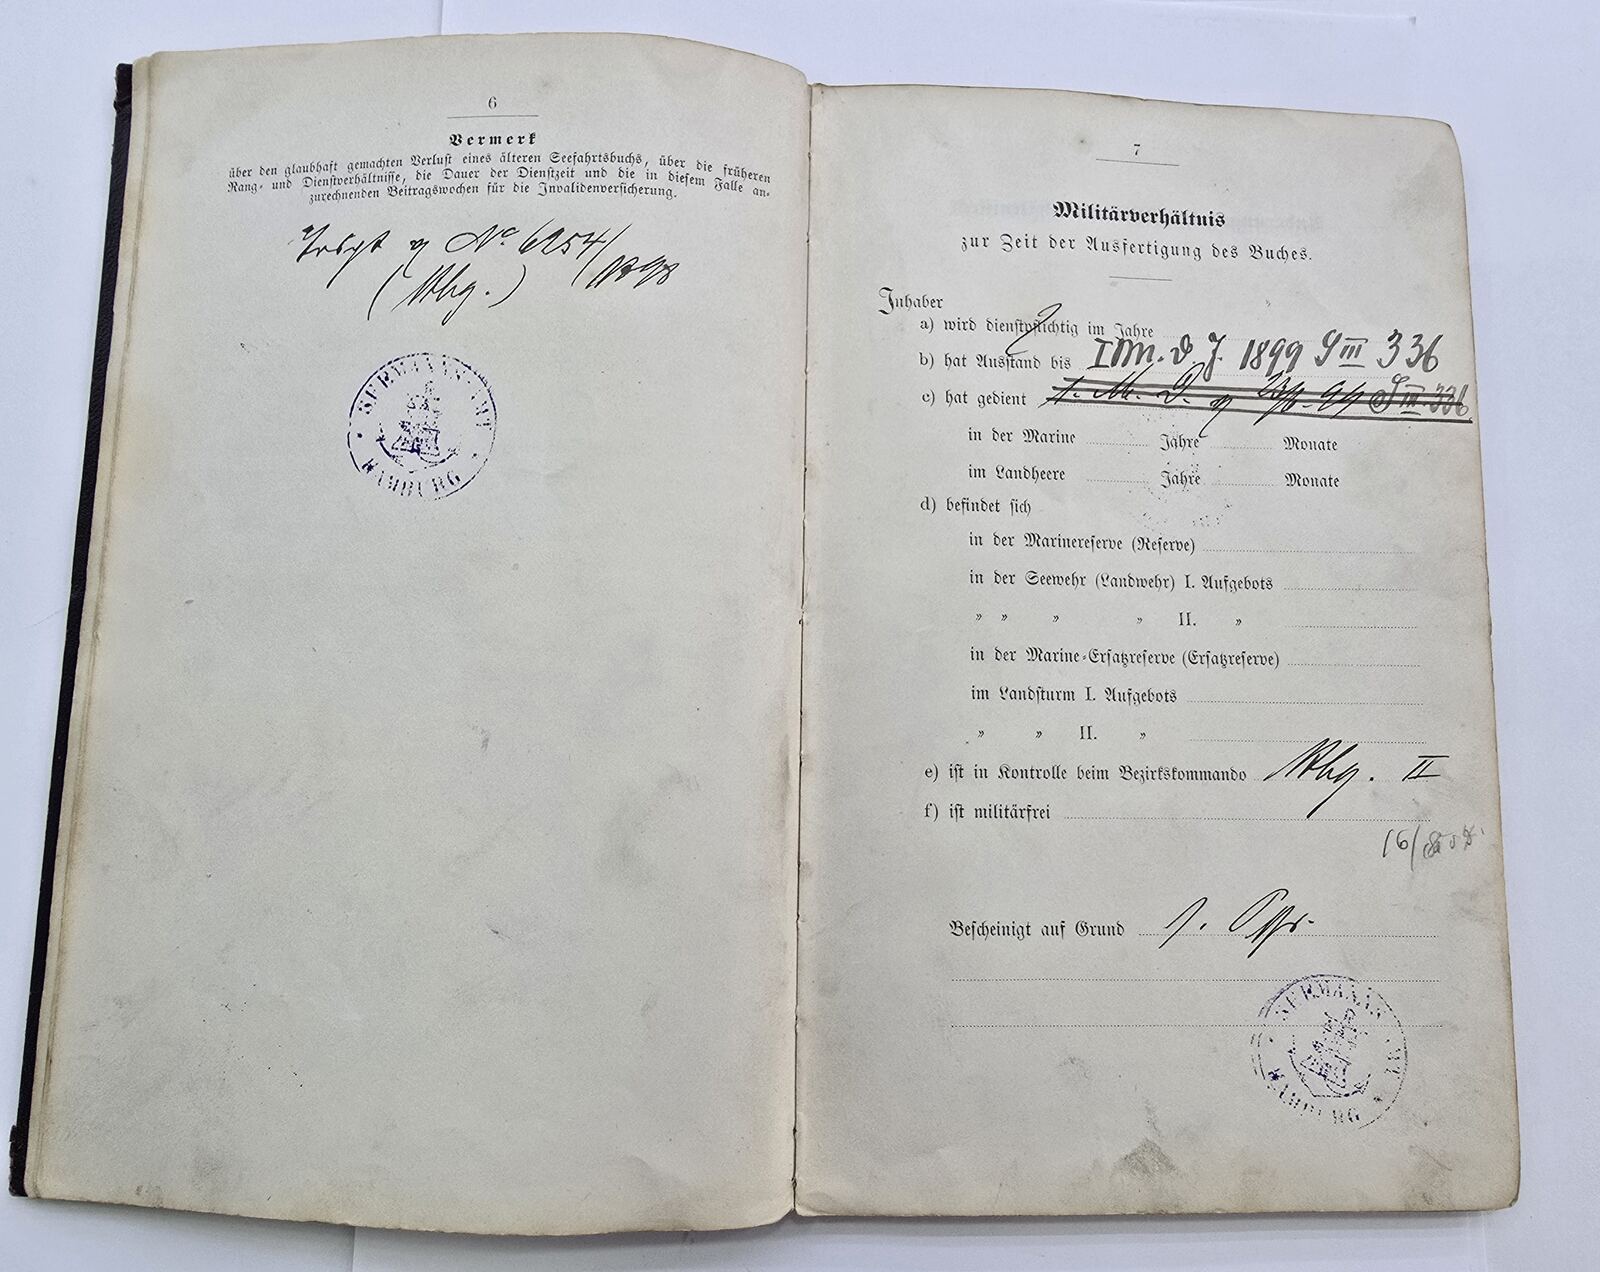 6
Vermerk
über den glaubhaft gemachten Verlust eines älteren Seefahrtsbuchs, über die früheren
Rang- und Dienstverhältnisse, die Dauer der Dienstzeit und die in diesem Falle an-
zurechnenden Beitragswochen für die Invalidenversicherung.
No 6254/
1898
(Hbg.)
SEEMANNS-AMT
HAMBURG
7
Militärverhältnis
zur Zeit der Ausfertigung des Buches.
Inhaber
a) wird dienstpflichtig im Jahre
b) hat Ausstand bis I M. D. J. 1899 S III 336
c) hat gedient
in der Marine Jahre Monate
im Landheere Jahre Monate
d) befindet sich
in der Marinereserve (Reserve)
in der Seewehr (Landwehr) I. Aufgebots
" " " " II. "
in der Marine-Ersatzreserve (Ersatzreserve)
im Landsturm I. Aufgebots
" " II. "
e) ist in Kontrolle beim Bezirkskommando Hbg. II
f) ist militärfrei
16/
Bescheinigt auf Grund
SEEMANNS-AMT
HAMBURG